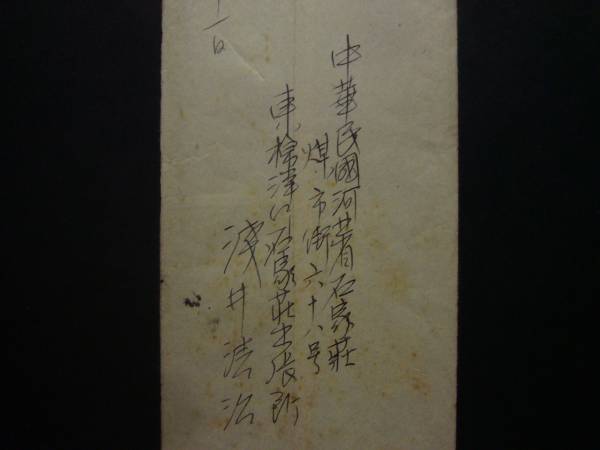 中華民國河北省石家莊
煤市街六十八号
東棉洋行石家莊出張所
淺井清治
一日